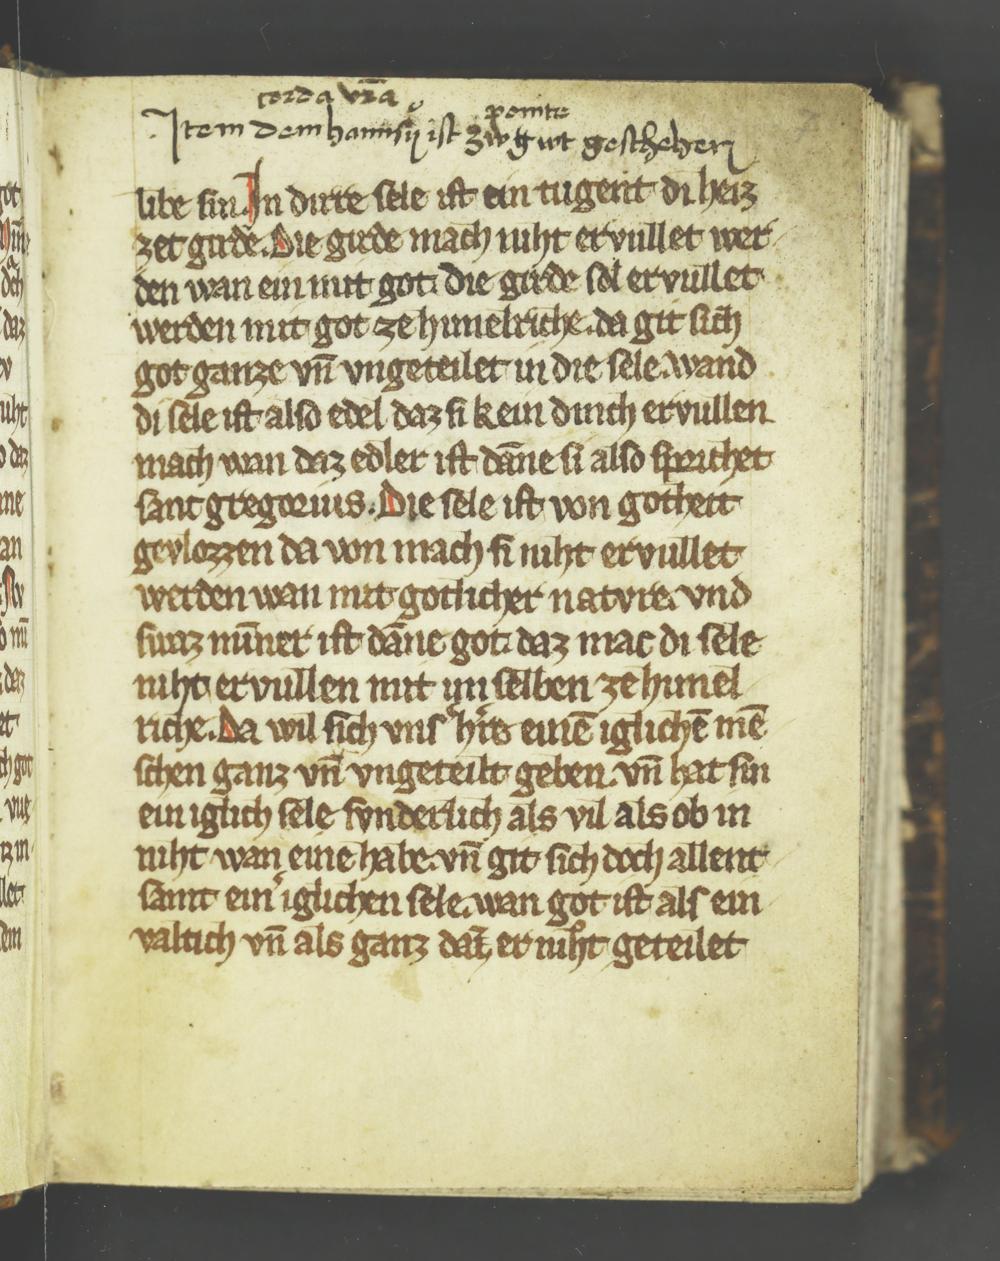 corda vr̄a
penite
Item dem hannsÿ ist zw gut geschehen
libe sin. In dirre sele ist ein tugent di heiz
zet girde. Die girde mach niht ervullet wer
den wan ein mit got. die girde sol ervullet
werden mit got ze himelriche. da git sich
got ganze vn̄ vngeteilet in die sele. wand
di sele ist also edel daz si kein dinch ervullen
mach wan daz edler ist dāne si also sprichet
sant gregorius. Die sele ist von gotheit
gevlozzen da von mach si niht ervullet
werden wan mit gotlicher natvre. vnd
swaz minner ist dāne got. daz mac di sele
niht ervullen mit im selben ze himel
riche. Da wil sich vnsˀ hˀre einē iglichē mē
schen ganz vn̄ vngeteilt geben. vn̄ hat sin
ein iglich sele svnderlich als vil als ob in
niht wan eine habe. vn̄ git sich doch allent
samt einˀ iglichen sele. wan got ist als ein
valtich vn̄ als ganz daz er niht geteilet